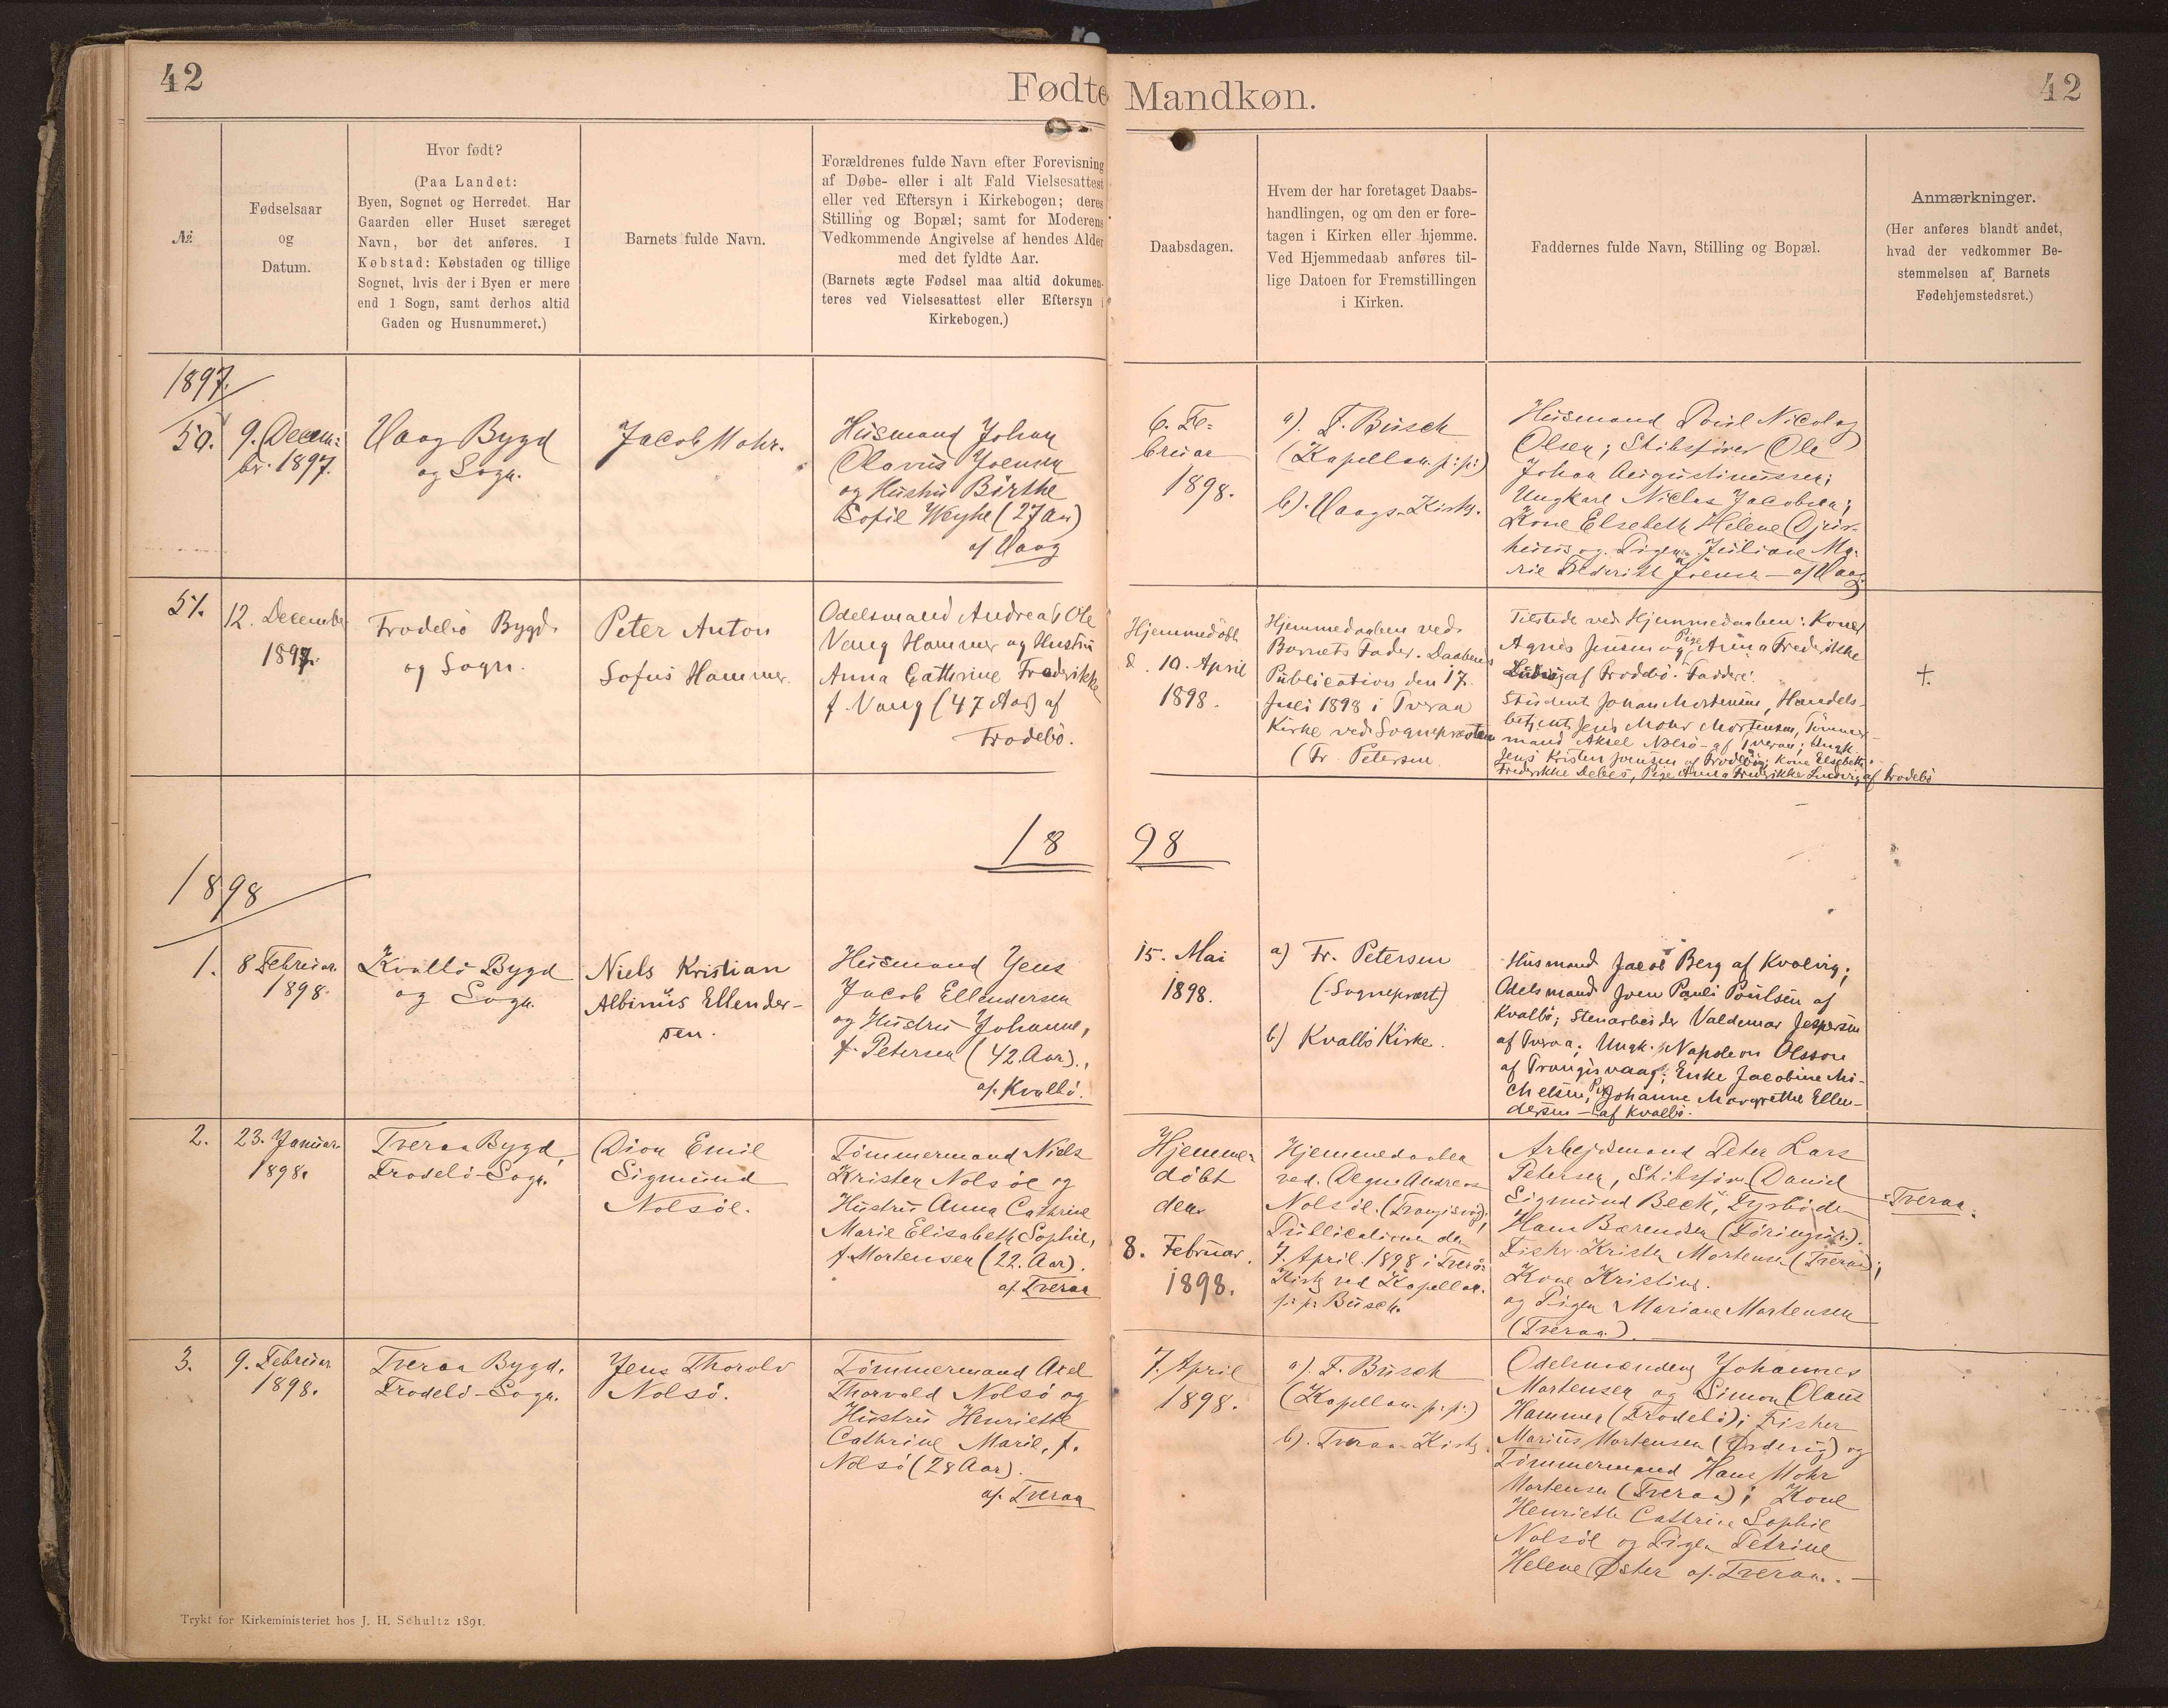 42
Fødte
Mandkøn.
42
№
Fødselsaar
og
Datum.
Hvor født?
(Paa Landet:
Byen, Sognet og Herredet. Har
Gaarden eller Huset særeget
Navn, bør det anføres. I
Købstad: Købstaden og tillige
Sognet, hvis der i Byen er mere
end 1 Sogn, samt derhos altid
Gaden og Husnummeret.)
Barnets fulde Navn.
Forældrenes fulde Navn efter Forevisning
af Døbe- eller i alt Fald Vielsesattest
eller ved Eftersyn i Kirkebogen; deres
Stilling og Bopæl; samt for Moderens
Vedkommende Angivelse af hendes Alder
med det fyldte Aar.
(Barnets ægte Fødsel maa altid dokumen-
teres ved Vielsesattest eller Eftersyn i
Kirkebogen.)
Daabsdagen.
Hvem der har foretaget Daabs-
handlingen, og om den er fore-
tagen i Kirken eller hjemme.
Ved Hjemmedaab anføres til-
lige Datoen for Fremstillingen
i Kirken.
Faddernes fulde Navn, Stilling og Bopæl.
Anmærkninger.
(Her anføres blandt andet,
hvad der vedkommer Be-
stemmelsen af Barnets
Fødehjemstedsret.)
1897.
50.
9. Decem:
br. 1897.
Vaag Bygd
og Sogn.
Jacob Mohr.
Husmand Johan
Olavus Joensen
og Hustru Birthe
Sofie Weyhe (27 Aar)
af Vaag
6. Fe=
bruar
1898.
a). F. Busch
(Kapellan p:p:)
b). Vaags-Kirke.
Husmand Poul Nicolaj
Olsen; Skibsfører Ole
Johan Augustinussen;
Ungkarl Niclas Jacobsen;
Kone Elsebeth Helene Djur-
huus og Pigen Juliane Ma-
rie Frederikke Joensen - af Vaag.
51.
12. December
1897.
Frodebø Bygd
og Sogn.
Peter Anton
Sofus Hammer.
Odelsmand Andreas Ole
Vang Hammer og Hustru
Anna Cathrine Frederikke
f. Vang (47 Aar) af
Frodebø.
Hjemmedöbt
d. 10. April
1898.
Hjemmedaaben ved
Barnets Fader. Daabens
Publication den 17.
Juli 1898 i Tveraa
Kirke ved Sognepræsten
(Fr. Petersen
Tilstede ved Hjemmedaaben: Kone
Agnes Jensen og Pige Anna Frederikke
Ludvig af Frodebö. Faddere:
Student Johan Mortensen, Handels-
betjent Jens Mohr Mortensen, Tömmer-
mand Aksel Nolsö - af Tveraa; Ungk.
Jens Kristen Jensen af Frodebö; Kone Elsebeth
Frederikke Debes, Pige Anna Frederikke Ludvig af Frodebö
†.
18
98
1898
1.
8 Februar
1898.
Kvalbø Bygd
og Sogn.
Niels Kristian
Albinus Ellender-
sen.
Husmand Jens
Jacob Ellendersen
og Hustru Johanne,
f. Petersen (42 Aar).,
af Kvalbø.
15. Mai
1898.
a) Fr. Petersen
(Sognepræst)
b) Kvalbö Kirke.
Husmand Jacob Berg af Kvalvig;
Odelsmand Joen Pauli Poulsen af
Kvalbö; Stenarbeider Valdemar Jespersen
af Tveraa; Ungk. Napoleon Olsson
af Trangisvaag; Enke Jacobine Mi-
chelsen, Pige Johanne Margrethe Ellen-
dersen - af Kvalbö.
2.
23. Januar
1898.
Tveraa Bygd,
Frodebø-Sogn.
Dion Emil
Sigmund
Nolsøe.
Tømmermand Niels
Kristen Nolsøe og
Hustru Anna Cathrine
Marie Elisabeth Sophie,
f. Mortensen (22 Aar).
af Tveraa
Hjemme-
døbt
den
8. Februar.
1898.
Hjemmedaaben
ved. Degn Andreas
Nolsøe. (Trangisvaag);
Publicationen den
7. April. 1898 i Tveraa
Kirke ved Kapellan.
p: p: Busch.
Arbejdsmand Peter Lars
Petersen, Skibsfører Daniel
Sigmund Beck,
Hans Bærendsen
Fisker Kristen Mortensen (Tveraa);
Kone Kristine
og Pigen Mariane Mortensen
(Tveraa).
Tveraa.
3.
9. Februar
1898.
Tveraa Bygd.
Frodebø-Sogn.
Jens Thorolv
Nolsø.
Tømmermand Axel
Thorvald Nolsø og
Hustru Henriette
Cathrine Marie, f.
Nolsø (28 Aar).
af Tveraa
7. April
1898.
a). F. Busch
(Kapellan p: p:)
b). Tveraa-Kirke.
Odelsmændene Johannes
Mortensen og Simon Olaus
Hammer (Frodebø); Fisker
Marius Mortensen (Ørdevig) og
Tømmermand Hans Mohr
Mortensen (Tveraa); Kone
Henriette Cathrine Sophie
Nolsøe og Pigen Petrine
Helene Øster af Tveraa. -
Trykt for Kirkeministeriet hos J. H. Schultz 1891.